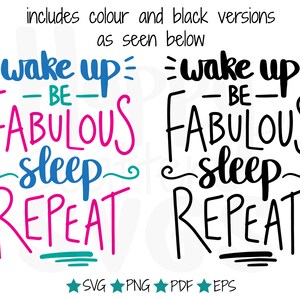 includes colour and black versions
as seen below
wake up
BE
FABULOUS
sleep
REPEAT
wake up
BE
FABULOUS
sleep
REPEAT
SVG PNG PDF EPS